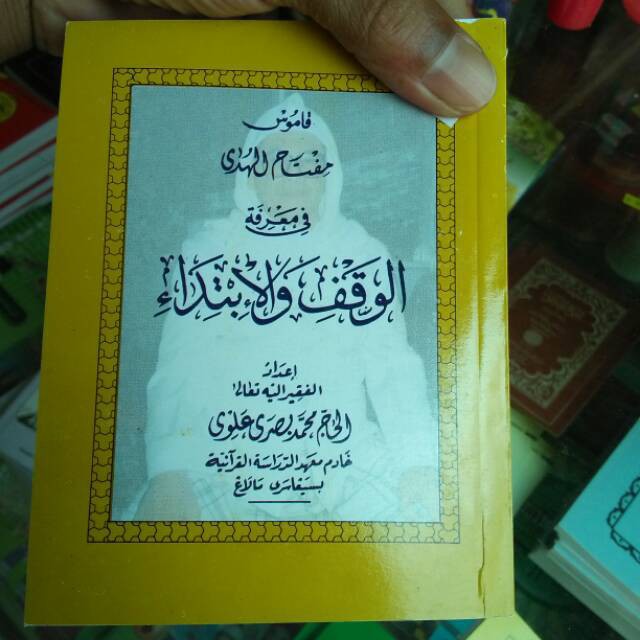 قاموس
مفتاح الهدى
في معرفة
الوقف والإبتداء
إعداد
الفقير إليه تعالى
الحاج محمد بصرى علوى
خادم معهد الدراسة القرآنية
بسيغاسرى مالاغ